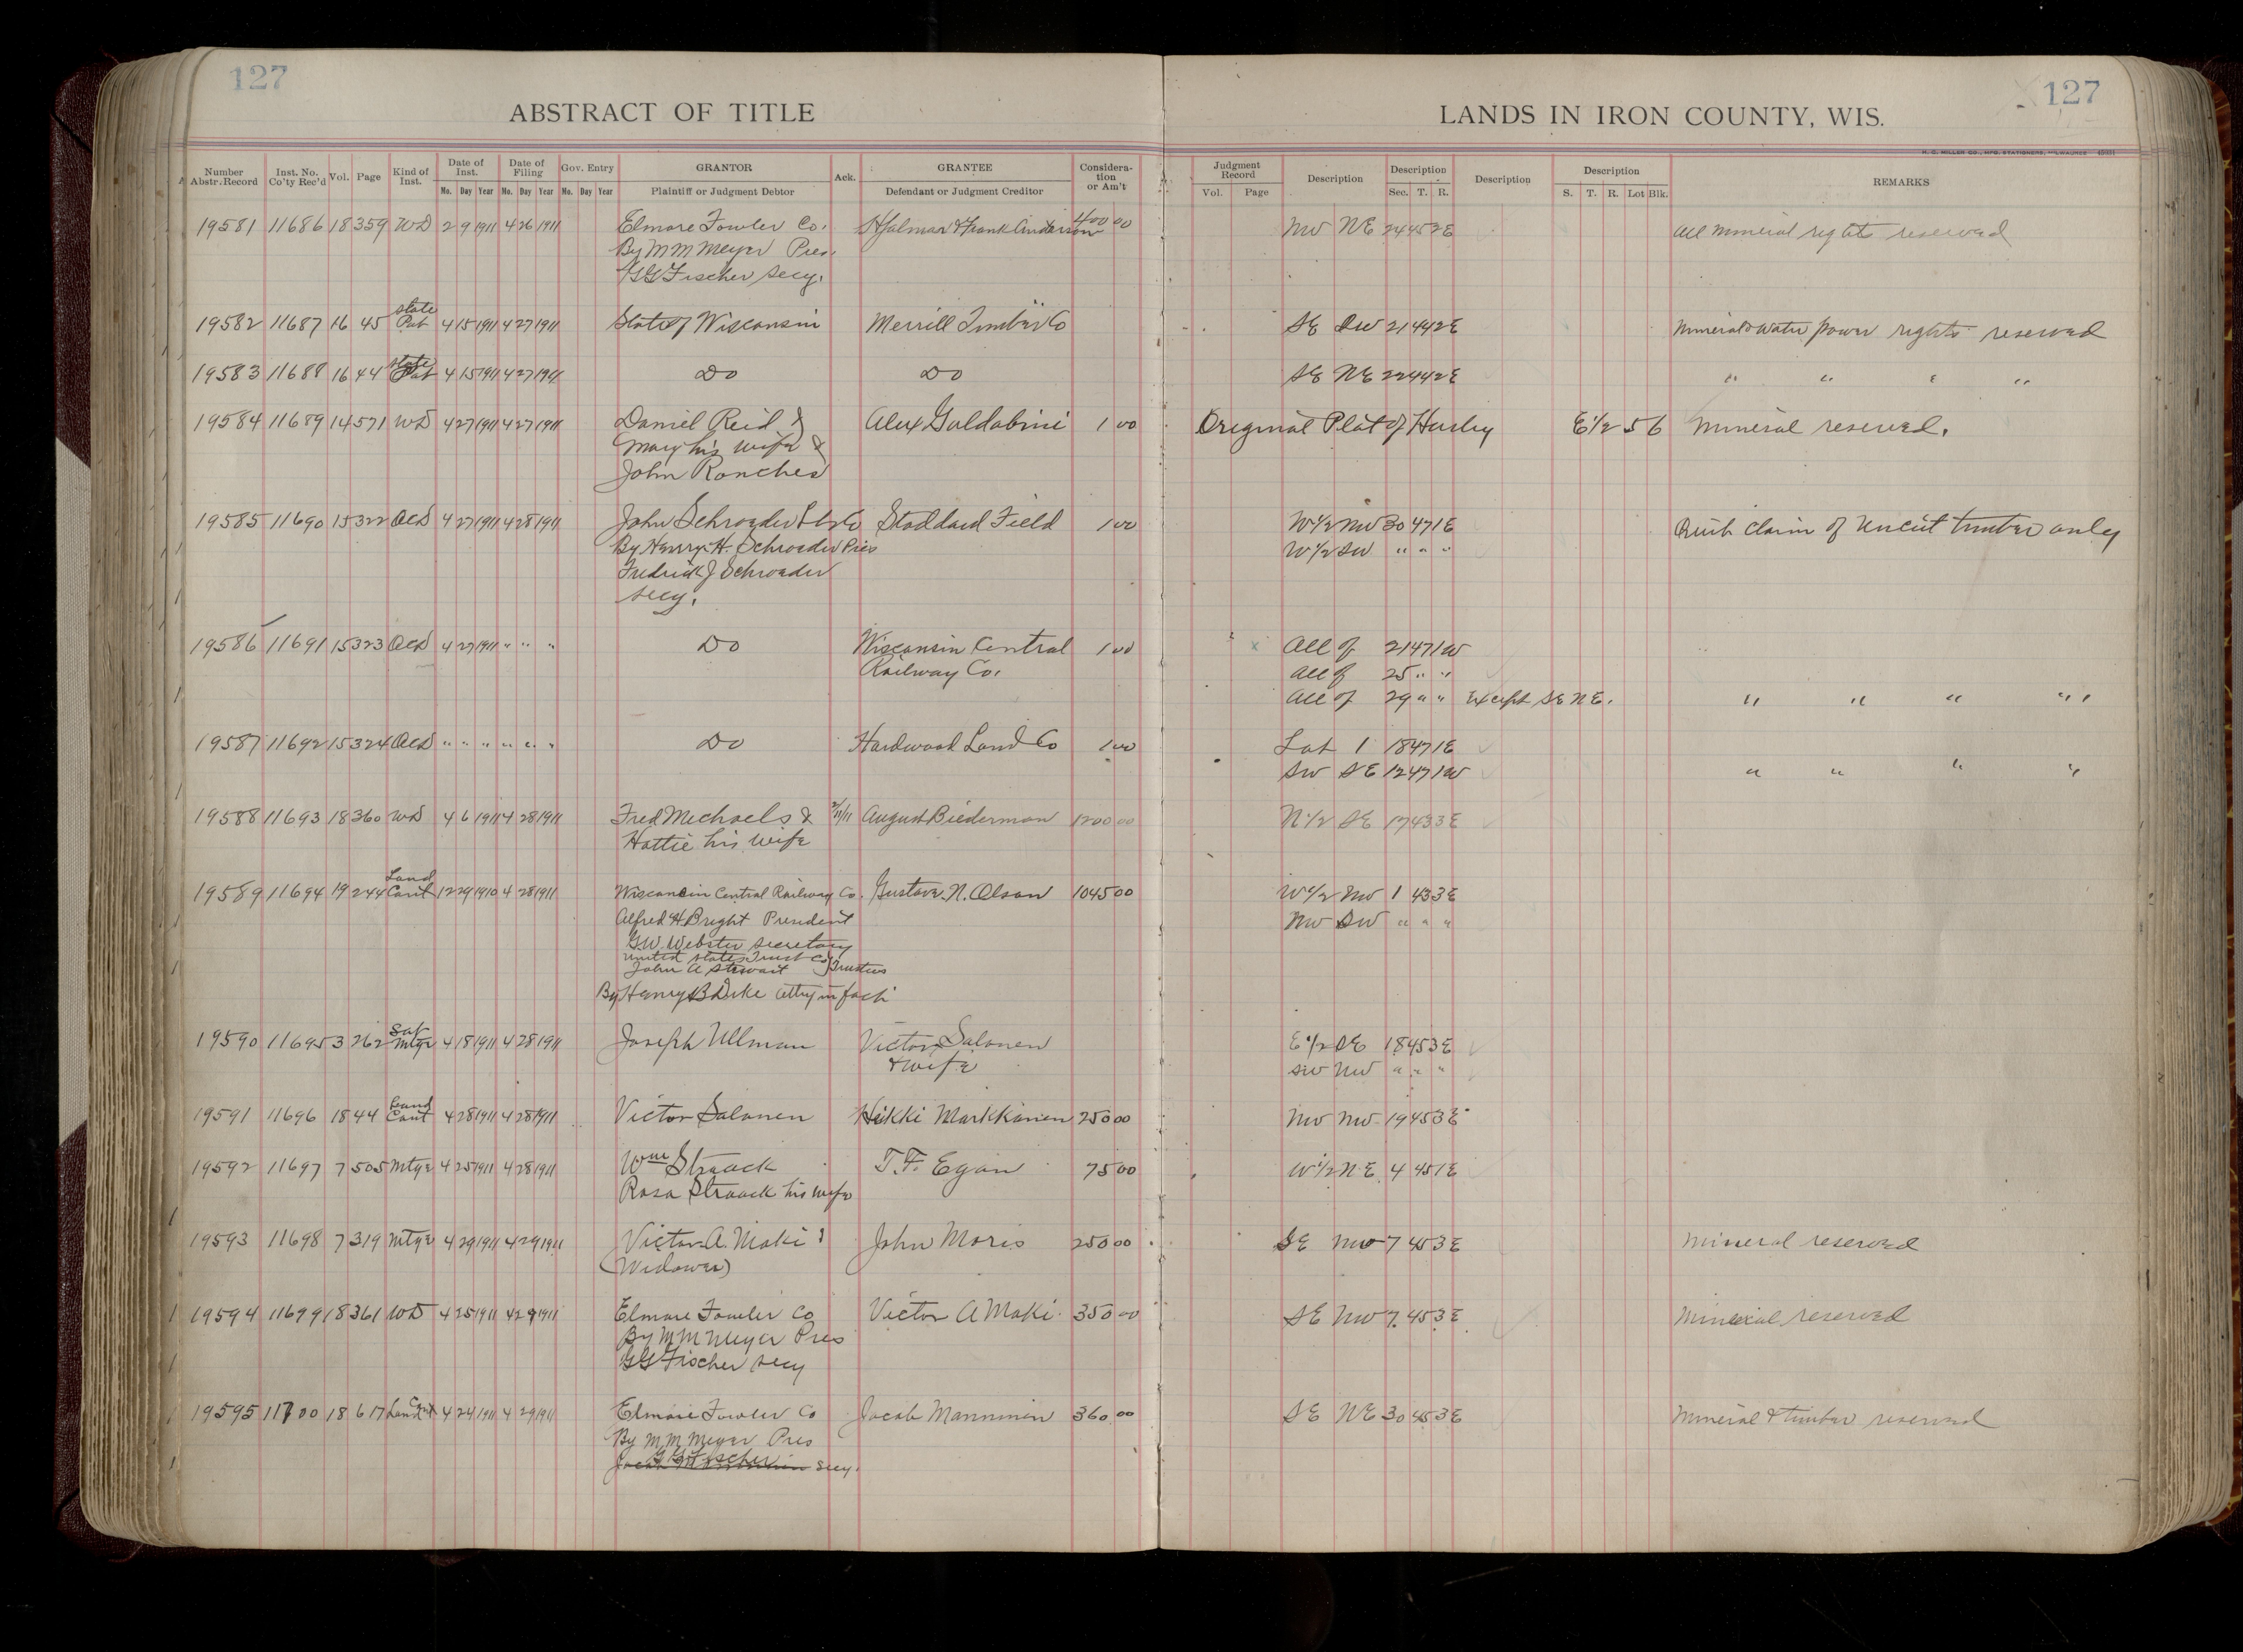 127
127
ABSTRACT OF TITLE
LANDS IN IRON COUNTY, WIS.
Number Abstr. Record | Inst. No. Co'ty Rec'd | Vol. | Page | Kind of Inst. | Date of Inst. Mo. Day Year | Date of Filing Mo. Day Year | Gov. Entry Mo. Day Year | GRANTOR Plaintiff or Judgment Debtor | Ack. | GRANTEE Defendant or Judgment Creditor | Considera-tion or Am't | Judgment Record Vol. Page | Description | Description Sec. T. R. | Description | Description S. T. R. Lot Blk. | REMARKS
19581 11686 18 359 WD 2 9 1911 4 26 1911 Elmore Fowler Co. Hjalmar & Frank Anderson 400 00 NW NE 24 45 2E All mineral rights reserved
By M M Meyer Pres.
G G Fischer Secy.
19582 11687 16 45 State Pat 4 15 1911 4 27 1911 State of Wisconsin Merrill Timber Co SE SW 21 44 2E Mineral & water power rights reserved
19583 11688 16 44 State Pat 4 15 1911 4 27 1911 Do Do SE NE 22 44 2E " " " "
19584 11689 14 571 WD 4 27 1911 4 27 1911 Daniel Reid & Alex Goldabini 1 00 Original Plat of Hurley E 1/2 5 6 Mineral reserved.
Mary his wife &
John Ronches
19585 11690 15 322 QCD 4 27 1911 4 28 1911 John Schroeder Lbr Co Stoddard Field 1 00 W 1/2 NW 30 47 1E Quit Claim of Uncut timber only
By Henry H. Schroeder Pres W 1/2 SW " " "
Fredrick J Schroeder
Secy.
19586 11691 15 323 QCD 4 27 1911 " " " Do Wisconsin Central 1 00 x All of 21 47 1W
Railway Co. All of 25 " "
All of 29 " " Except SE NE. " " " " "
19587 11692 15 324 QCD " " " " " " Do Hardwood Land Co 1 00 Lot 1 18 47 1E
SW SE 12 47 1W " " " "
19588 11693 18 360 WD 4 6 1911 4 28 1911 Fred Mechaels & August Biederman 1200 00 N 1/2 SE 17 43 3E
Hattie his wife
19589 11694 19 244 Land Cont 12 29 1910 4 28 1911 Wisconsin Central Railway Co. Gustave N. Olson 1045 00 W 1/2 NW 1 43 3E
Alfred H Bright President NW SW " " "
G.W. Webster Secretary
United States Trust Co
John A Stewart } Trustees
By Henry B Dike Atty in fact
19590 11695 3 262 Sat Mtge 4 18 1911 4 28 1911 Joseph Ullman Victor Salonen E 1/2 SE 18 45 3E
& wife SW NW " " "
19591 11696 18 44 Land Cont 4 28 1911 4 28 1911 Victor Salonen Heikki Markkanen 250 00 NW NW 19 45 3E
19592 11697 7 505 Mtge 4 25 1911 4 28 1911 Wm Straack T. F. Egan 75 00 W 1/2 NE 4 45 1E
Rosa Straack his wife
19593 11698 7 319 Mtge 4 29 1911 4 29 1911 Victor A. Maki John Moris 250 00 SE NW 7 45 3E Mineral reserved
(Widower)
19594 11699 18 361 WD 4 25 1911 4 29 1911 Elmore Fowler Co Victor A Maki 350 00 SE NW 7 45 3E Mineral reserved
By M M Meyer Pres
G G Fischer Secy
19595 11700 18 617 Land Cont 4 24 1911 4 29 1911 Elmore Fowler Co Jacob Mannninen 360 00 SE NE 30 45 3E Mineral & timber reserved
By M M Meyer Pres
G G Fischer Secy.